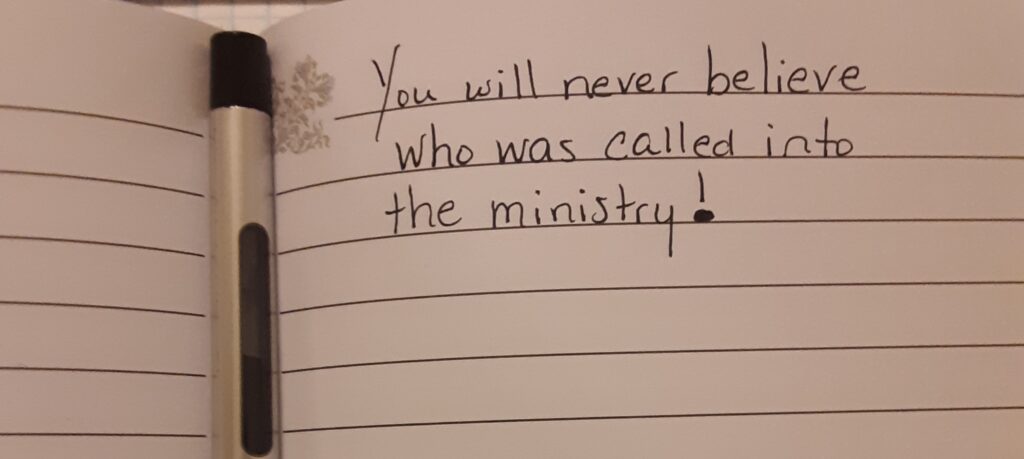 You will never believe
who was called into
the ministry!